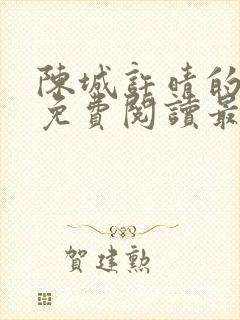 陳城許晴的
免費閱讀最
賀建勲